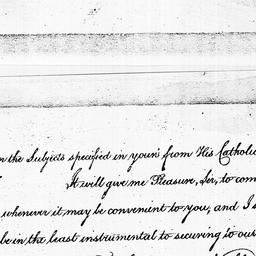 on the Subjects specified in yours from His Catholic
It will give me Pleasure, Sir, to com
whenever it may be convenient to you, and I s
be in the least instrumental to securing to our